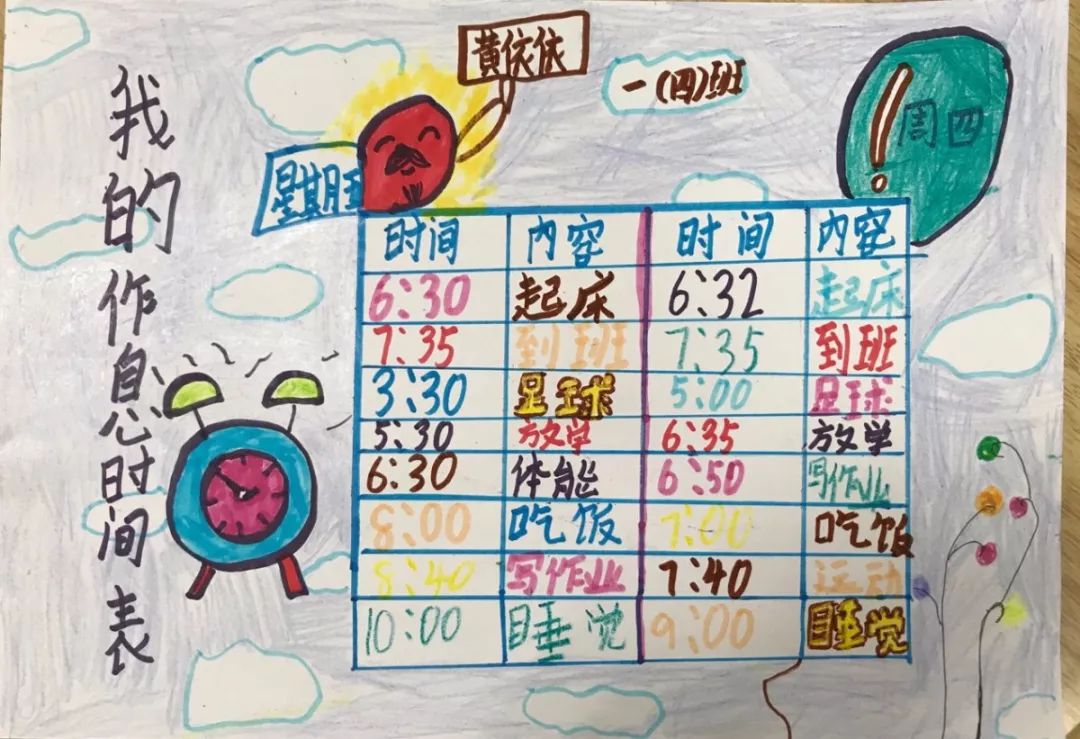 我的作息时间表
黄依依
一(四)班
星期五
周四
时间 内容 时间 内容
6:30 起床 6:32 起床
7:35 到班 7:35 到班
3:30 足球 5:00 足球
5:30 放学 6:35 放学
6:30 体能 6:50 写作业
8:00 吃饭 7:00 吃饭
8:40 写作业 7:40 运动
10:00 睡觉 9:00 睡觉